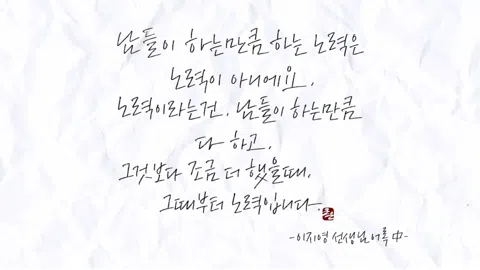 남들이 하는만큼 하는 노력은
노력이 아니에요.
노력이라는건. 남들이 하는만큼
다 하고.
그것보다 조금 더 했을때.
그때부터 노력입니다.
-이지영 선생님 어록 中-